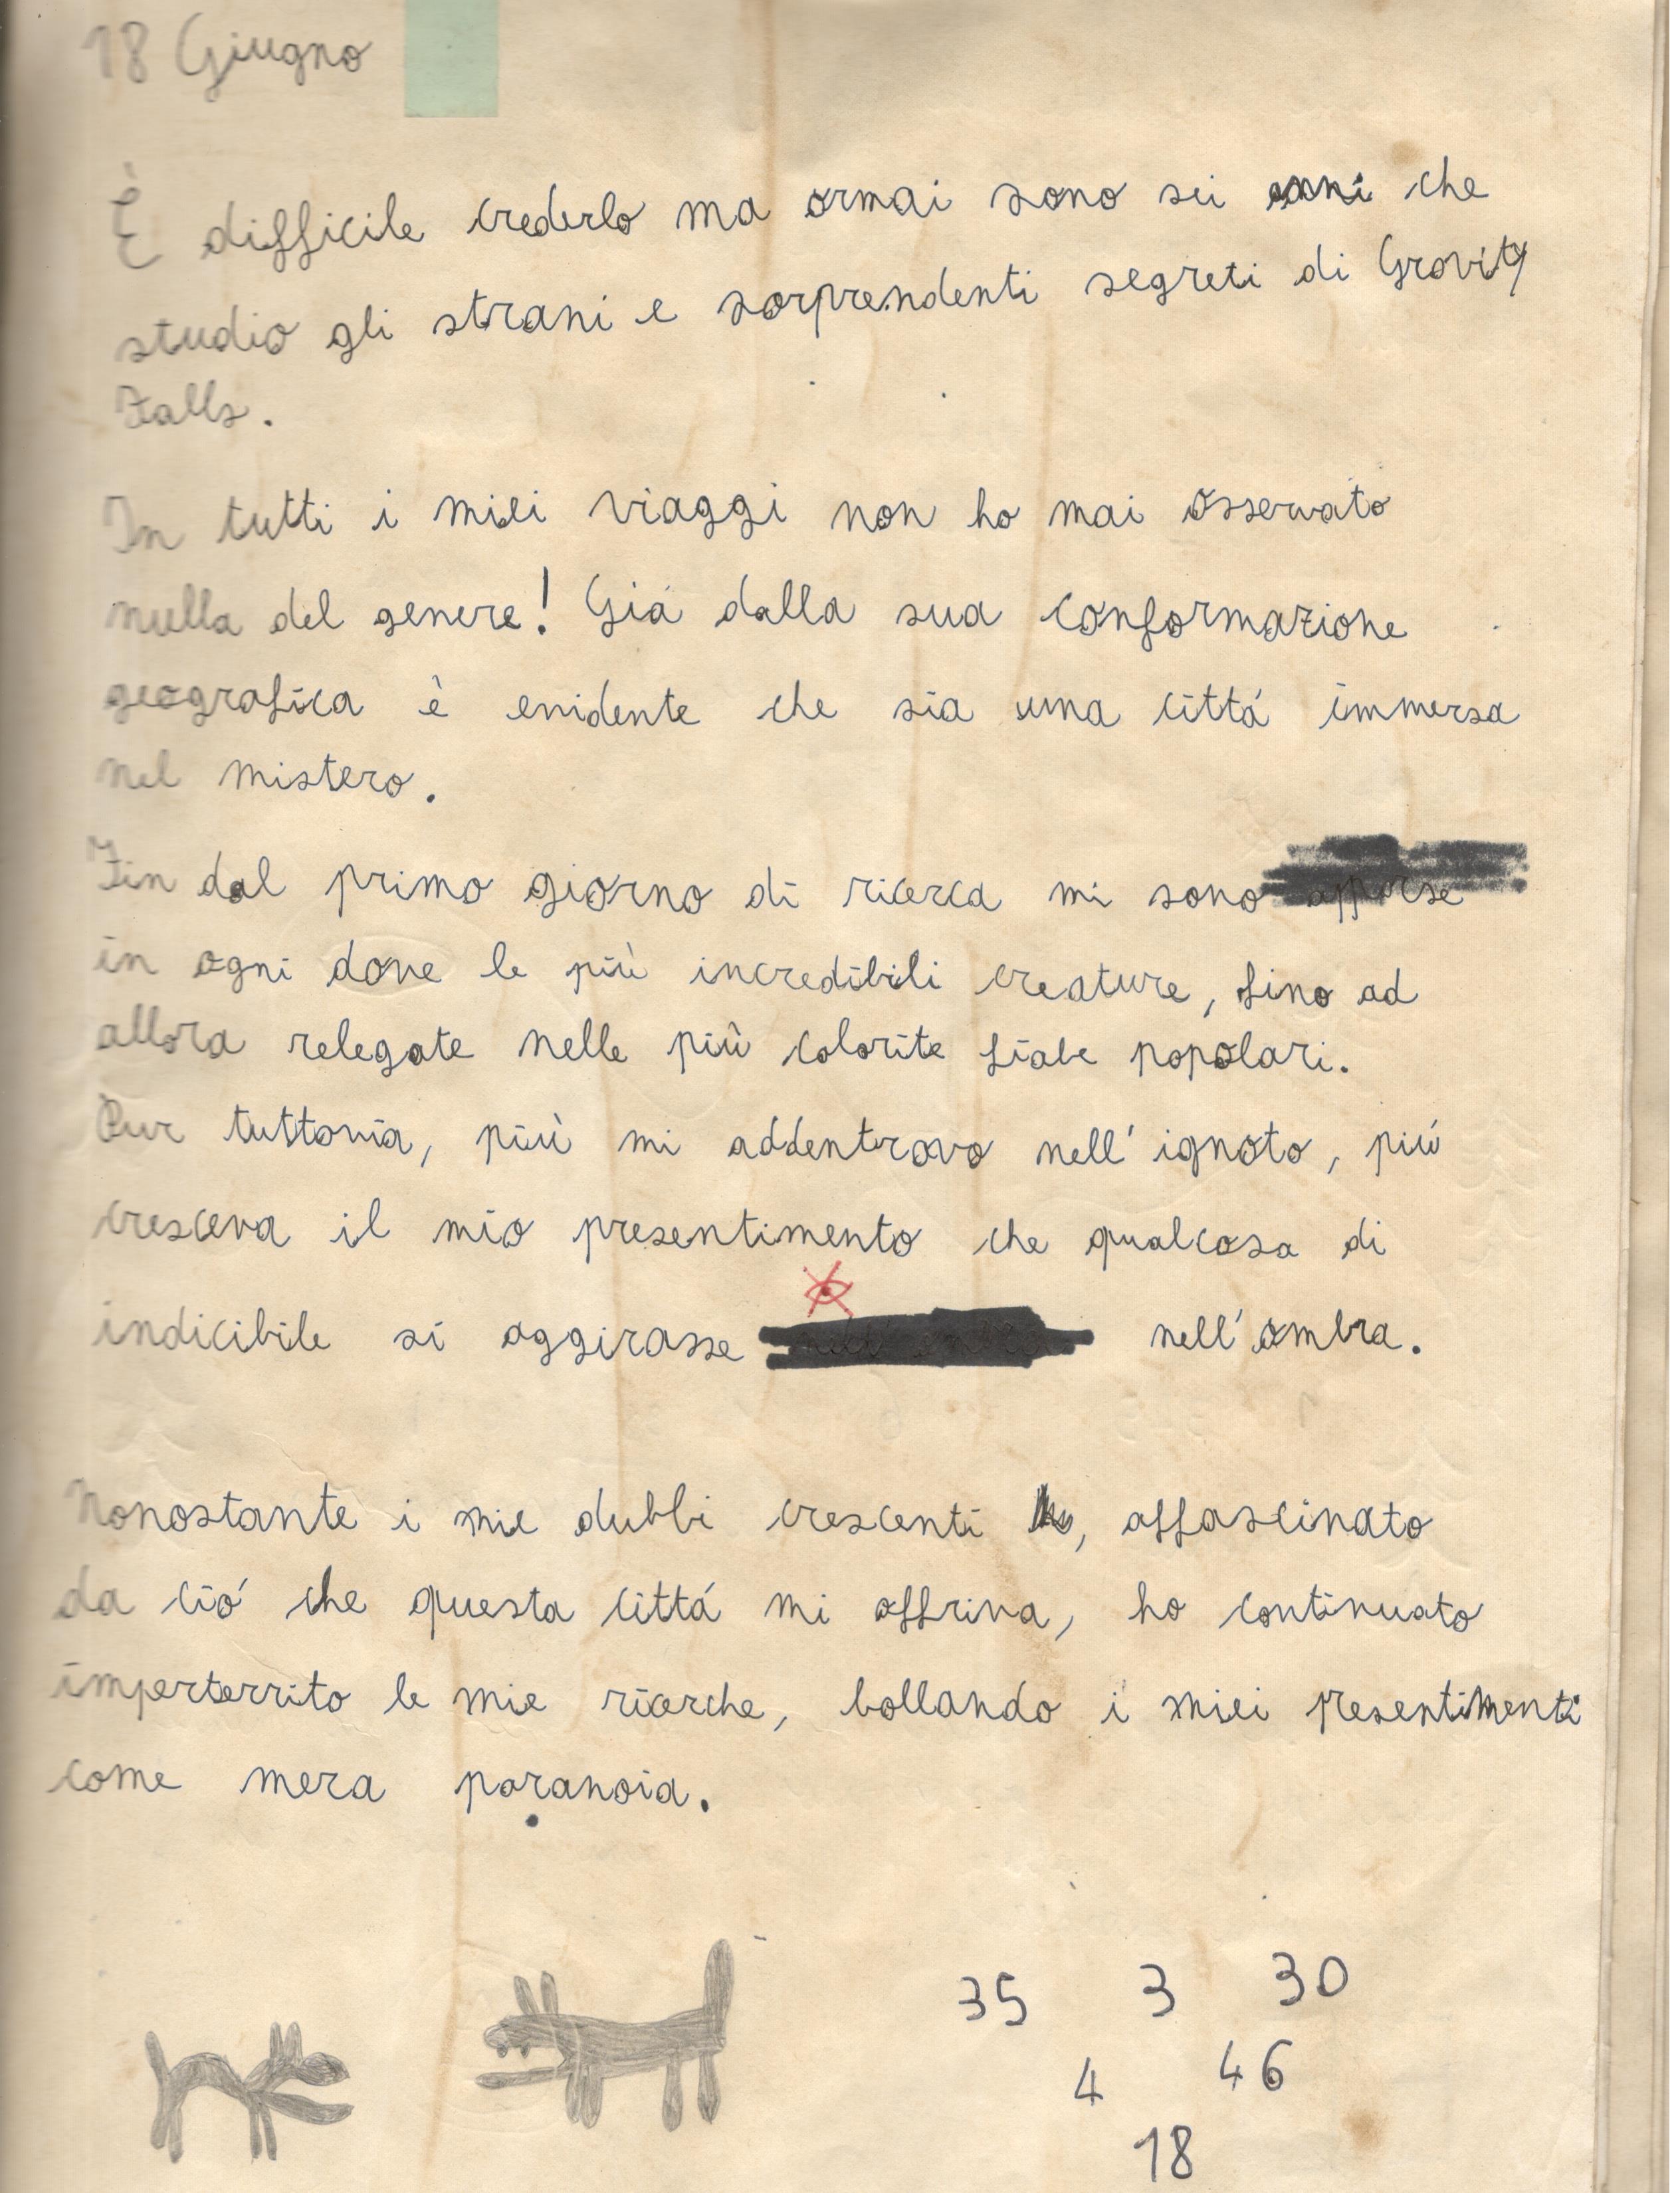 18 Giugno
È difficile crederlo ma ormai sono sei anni che
studio gli strani e sorprendenti segreti di Gravity
Falls.
In tutti i miei viaggi non ho mai osservato
nulla del genere! Giá dalla sua conformazione
geografica è evidente che sia una cittá immersa
nel mistero.
Fin dal primo giorno di ricerca mi sono apparse
in ogni dove le più incredibili creature, fino ad
allora relegate nelle più colorite fiabe popolari.
Pur tuttavia, più mi addentravo nell'ignoto, piú
cresceva il mio presentimento che qualcosa di
indicibile si aggirasse nell'ombra.
Nonostante i mie dubbi crescenti , affascinato
da ció che questa cittá mi offriva, ho continuato
imperterrito le mie ricerche, bollando i miei presentimenti
come mera paranoia.
35 3 30
4 46
18